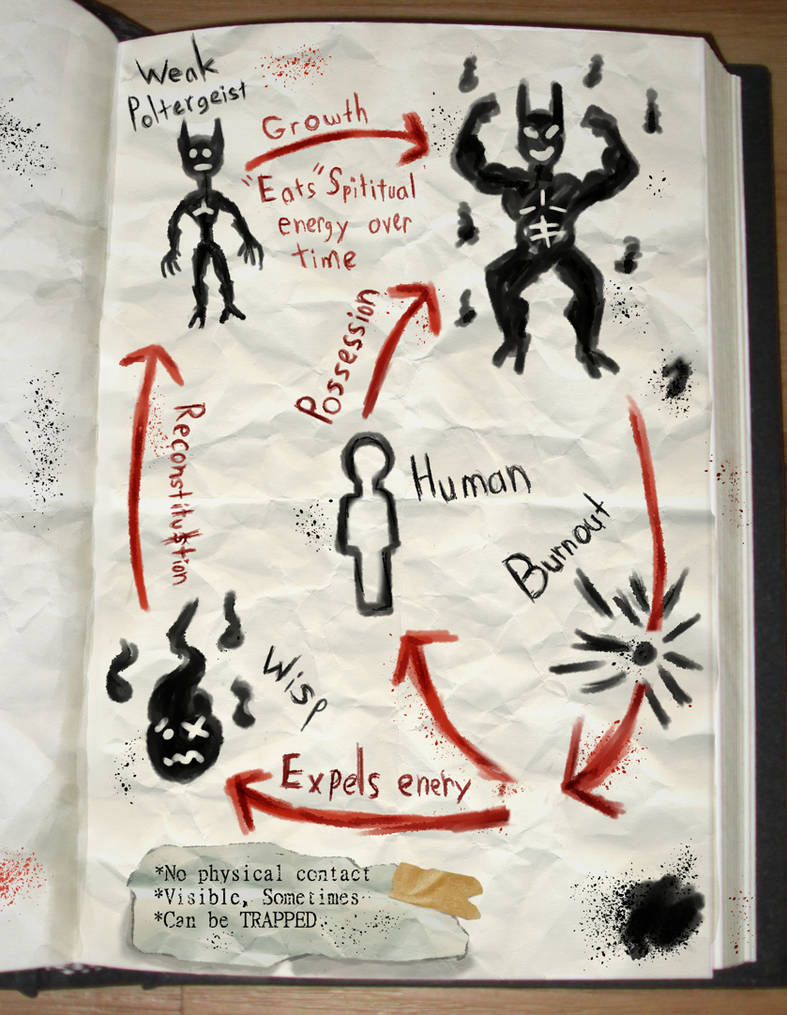 Weak
Poltergeist
Growth
"Eats" Spititual
energy over
time
Possession
Reconstitustion
Human
Burnout
Wisp
Expels enery
*No physical contact
*Visible, Sometimes
*Can be TRAPPED